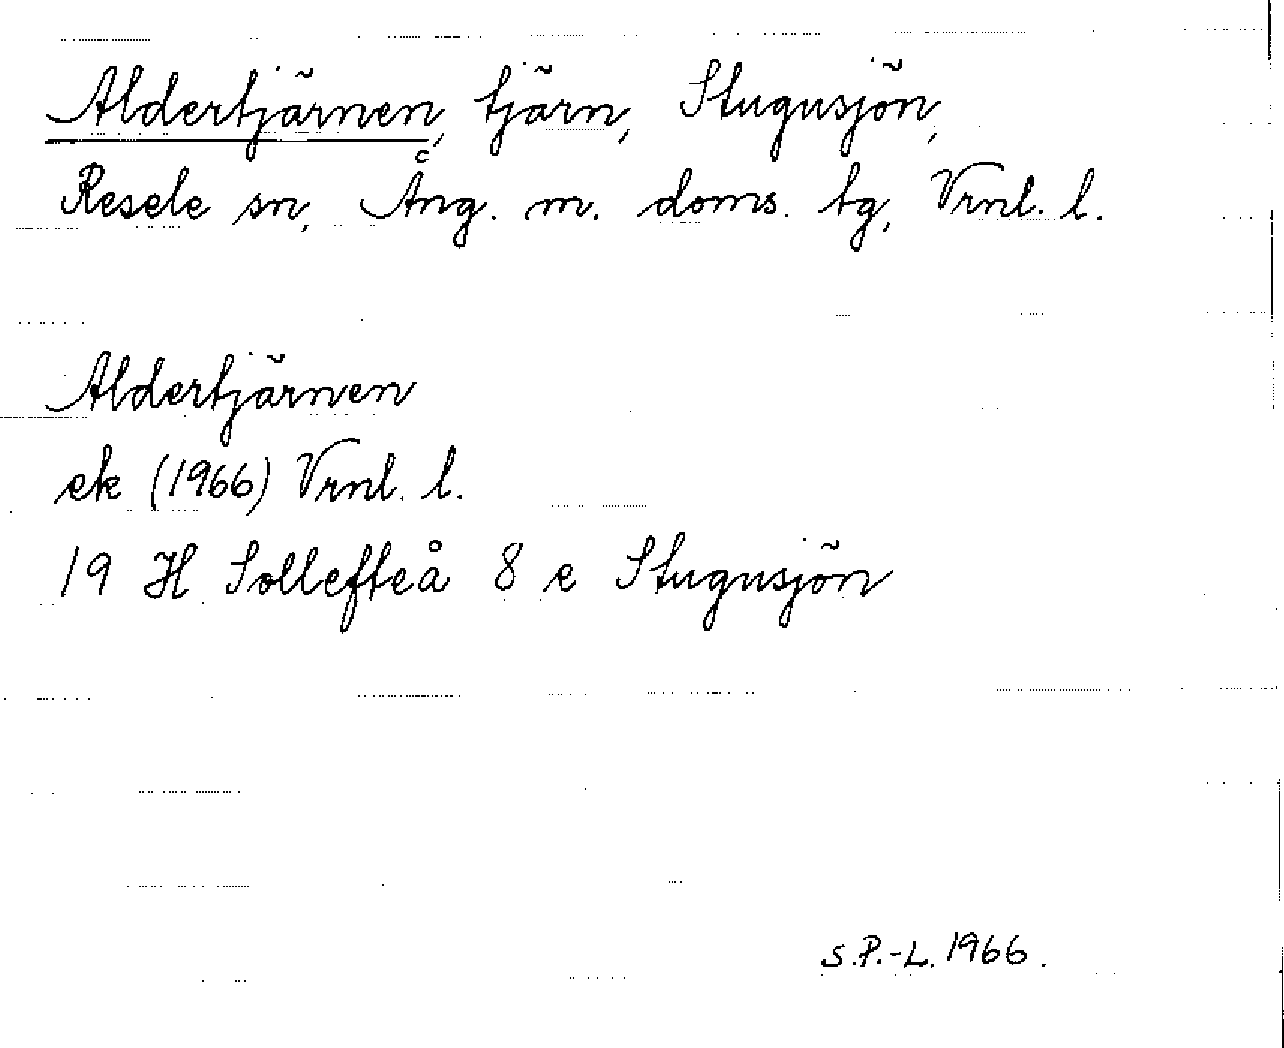 Aldertjärnen, tjärn, Stugusjön,
Resele sn, Ång. m. doms. tg, Vrnl. l.
Aldertjärnen
ek (1966) Vrnl. l.
19 H Sollefteå 8 e Stugusjön
S.P.-L. 1966.